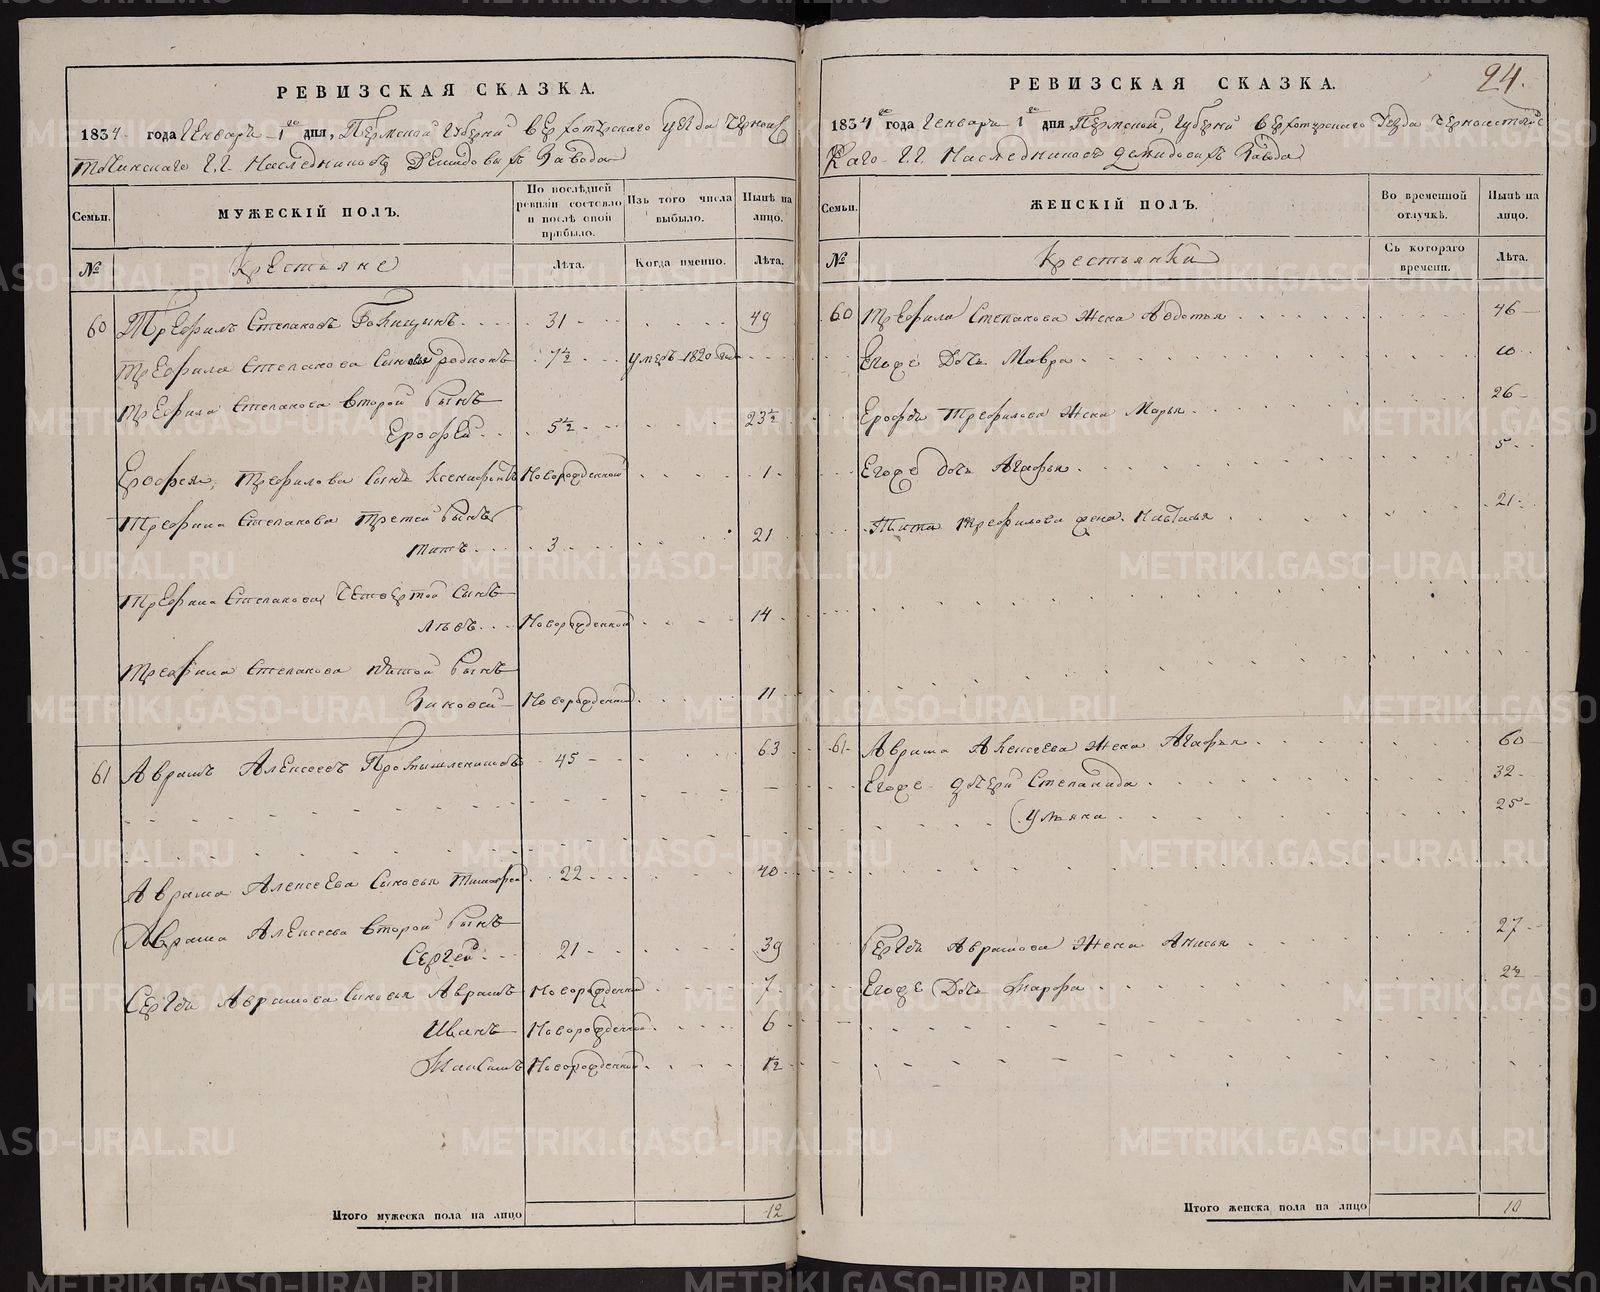 РЕВИЗСКАЯ СКАЗКА.
1834. года Генваря 1го дня, Пермской Губернии Верхотурскаго уезда Черноис
точинскаго Г.Г. Наследниковъ Демидовыхъ Завода
Семьи.
МУЖЕСКІЙ ПОЛЪ.
По послѣдней ревизіи состояло и послѣ оной прибыло.
Изъ того числа выбыло.
Нынѣ на лицо.
№
Крестьяне
Лѣта.
Когда именно.
Лѣта.
60 Трефилъ Степановъ 31 49
Трефила Степанова Сыновья Родионъ 7½ умеръ 1820
Трефила Степанова второй Сынъ
Ерофей 5½ 23½
Ерофея Трефилова Сынъ Ксенофонтъ Новорожденной 1
Трефила Степанова третей Сынъ
Титъ 3 21
Трефила Степанова четвертой Сынъ
Львъ Новорожденной 14
Трефила Степанова пятой Сынъ
Зиновей Новорожденной 11
61 Аврамъ Алексеевъ Промышленниковъ 45 63
Аврама Алексеева Сыновья Тимофей 22 40
Аврама Алексеева второй Сынъ
Сергей 21 39
Сергея Аврамова Сыновья Аврамъ Новорожденной 7
Иванъ Новорожденной 6
Максимъ Новорожденной ½
Итого мужеска пола на лицо 12
24.
РЕВИЗСКАЯ СКАЗКА.
1834го года Генваря 1го дня Пермской, Губернии Верхотурскаго Уезда Черноисточинс
каго Г.Г. Наследниковъ Демидовыхъ Завода
Семьи.
ЖЕНСКІЙ ПОЛЪ.
Во временной отлучкѣ.
Нынѣ на лицо.
№
Крестьянки
Съ котораго времени.
Лѣта.
60 Трефила Степанова Жена Авдотья 46
Егоже Дочь Мавра 10
Ерофея Трефилова Жена Марья 26
Егоже дочь Агафья 5
Тита Трефилова жена Наталья 21
61 Аврама Алексеева Жена Агафья 60
Егоже дочери Степанида 32
Ульяна 25
Сергея Аврамова Жена Анисья 27
Егоже Дочь Марфа
Итого женска пола на лицо 10
METRIKI.GASO-URAL.RU